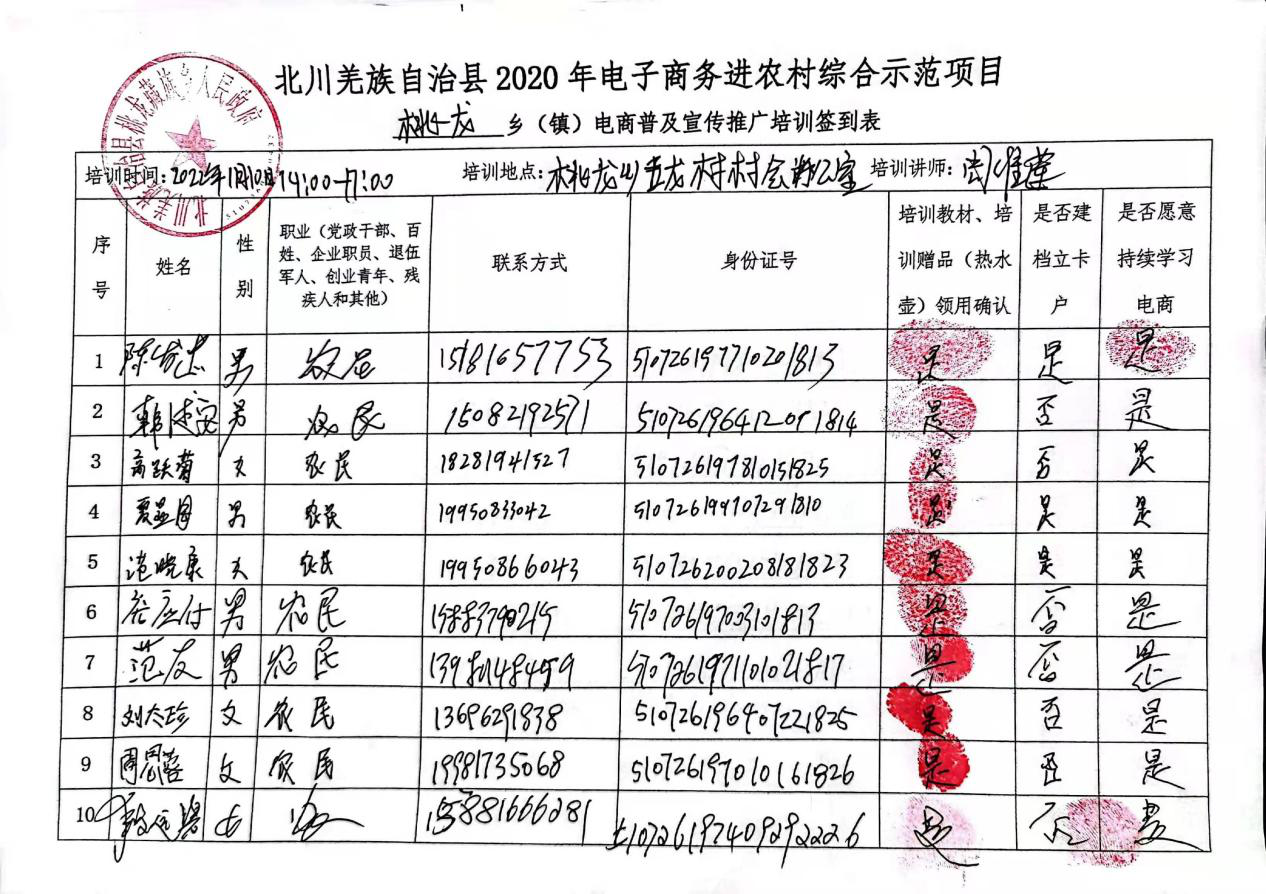 北川羌族自治县 2020 年电子商务进农村综合示范项目
桃龙 乡（镇）电商普及宣传推广培训签到表
培训时间：2022年1月10日 14:00-17:00 培训地点：桃龙乡五龙村村会办公室 培训讲师：
序号 姓名 性别 职业（党政干部、百姓、企业职员、退伍军人、创业青年、残疾人和其他） 联系方式 身份证号 培训教材、培训赠品（热水壶）领用确认 是否建档立卡户 是否愿意持续学习电商
1 男 农民 15181657753 510726197710201813 是 是 是
2 男 农民 15082192571 510726196412091814 是 否 是
3 高跃菊 女 农民 18281941527 510726197810151825 是 否 是
4 男 农民 19950833042 510726199707291810 是 是 是
5 范晓康 女 农民 19950866043 510726200208181823 是 是 是
6 男 农民 510726197003101813 是 否 是
7 范友 男 农民 510726197110121817 是 否 是
8 刘大珍 女 农民 13696291838 510726196407221825 是 否 是
9 周思蓉 女 农民 19981735068 510726197010161826 是 否 是
10 女 15881666281 510726197409292226 是 否